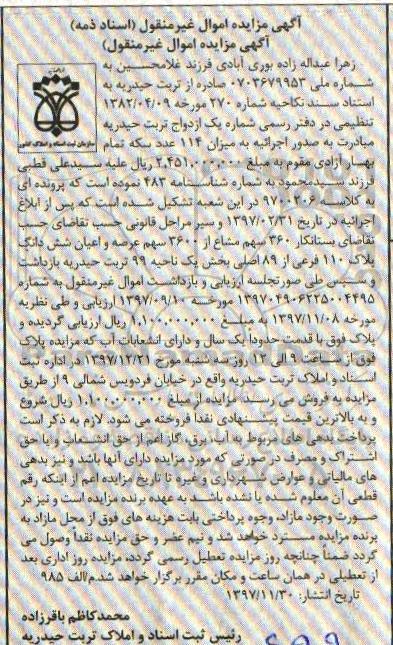 آگهی مزایده اموال غیرمنقول (اسناد ذمه)
آگهی مزایده اموال غیرمنقول)
زهرا عبداله زاده بوری آبادی فرزند غلامحسین به
شماره ملی ۰۷۰۳۶۷۹۹۵۳ صادره از تربت حیدریه به
استناد سند نکاحیه شماره ۲۷۰ مورخه ۱۳۸۲/۰۴/۰۹
تنظیمی در دفتر رسمی شماره یک ازدواج تربت حیدریه
مبادرت به صدور اجرائیه به میزان ۱۱۴ عدد سکه تمام
بهار آزادی مقوم به مبلغ ۲،۴۵۱،۰۰۰،۰۰۰ ریال علیه سیدعلی قطبی
فرزند سیدمحمود به شماره شناسنامه ۴۸۳ نموده است که پرونده ای
به کلاسه ۹۷۰۰۳۰۶ در این شعبه تشکیل شده است که پس از ابلاغ
اجرائیه در تاریخ ۱۳۹۷/۰۲/۳۱ و سیر مراحل قانونی حسب تقاضای حسب
تقاضای بستانکار ۳۶۰ سهم مشاع از ۳۶۰۰ سهم عرصه و اعیان شش دانگ
پلاک ۱۱۰ فرعی از ۸۹ اصلی بخش یک ناحیه ۹۹ تربت حیدریه بازداشت
و سپس طی صورتجلسه ارزیابی و بازداشت اموال غیرمنقول به شماره
۱۳۹۷۰۴۹۰۶۲۲۵۰۰۴۴۹۵ مورخسه ۱۳۹۷/۰۹/۱۰ ارزیابی و طی نظریه
مورخه ۱۳۹۷/۱۱/۰۸ به مبلغ ۱،۱۰۰،۰۰۰،۰۰۰ ریال ارزیابی گردیده و
پلاک فوق با قدمت حدودا یک سال و دارای انشعابات آب که مزایده پلاک
فوق از ساعت ۹ الی ۱۲ روز سه شنبه مورخ ۱۳۹۷/۱۲/۲۱ در اداره ثبت
اسناد و املاک تربت حیدریه واقع در خیابان فردوسی شمالی ۹ از طریق
مزایده به فروش می رسد. مزایده از مبلغ ۱،۱۰۰،۰۰۰،۰۰۰ ریال شروع
و به بالاترین قیمت پیشنهادی نقدا فروخته می شود. لازم به ذکر است
پرداخت بدهی های مربوط به آب، برق، گاز اعم از حق انشعاب و یا حق
اشتراک و مصرف در صورتی که مورد مزایده دارای آنها باشد و نیز بدهی
های مالیاتی و عوارض شهرداری و غیره تا تاریخ مزایده اعم از اینکه رقم
قطعی آن معلوم شده یا نشده باشد به عهده برنده مزایده است و نیز در
صورت وجود مازاد، وجوه پرداختی بابت هزینه های فوق از محل مازاد به
برنده مزایده مسترد خواهد شد و نیم عشر و حق مزایده نقدا وصول می
گردد ضمناً چنانچه روز مزایده تعطیل رسمی گردد، مزایده روز اداری بعد
از تعطیلی در همان ساعت و مکان مقرر برگزار خواهد شد.م/الف ۹۸۵
تاریخ انتشار: ۱۳۹۷/۱۱/۳۰
محمدکاظم باقرزاده
رئیس ثبت اسناد و املاک تربت حیدریه